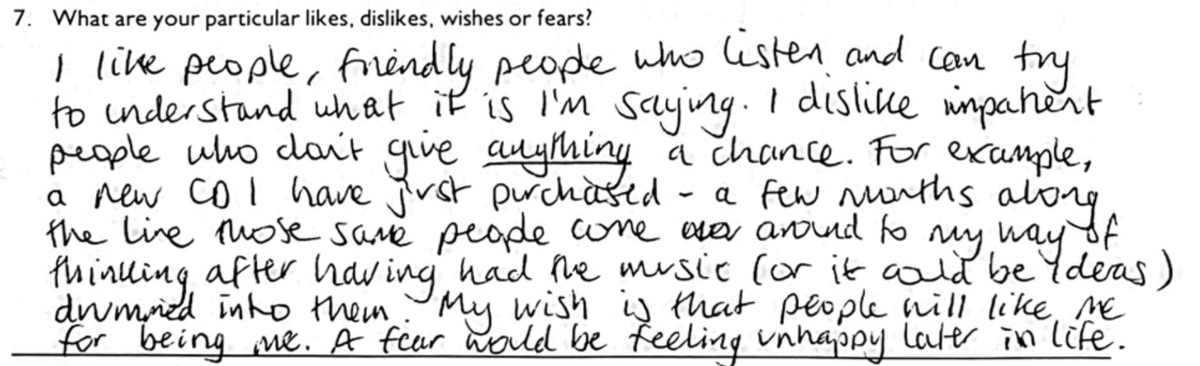 7. What are your particular likes, dislikes, wishes or fears?
I like people, friendly people who listen and can try
to understand what it is I'm saying. I dislike impatient
people who don't give anything a chance. For example,
a new CD I have just purchased - a few months along
the line those same people come around to my way of
thinking after having had the music (or it could be ideas)
drummed into them. My wish is that people will like me
for being me. A fear would be feeling unhappy later in life.